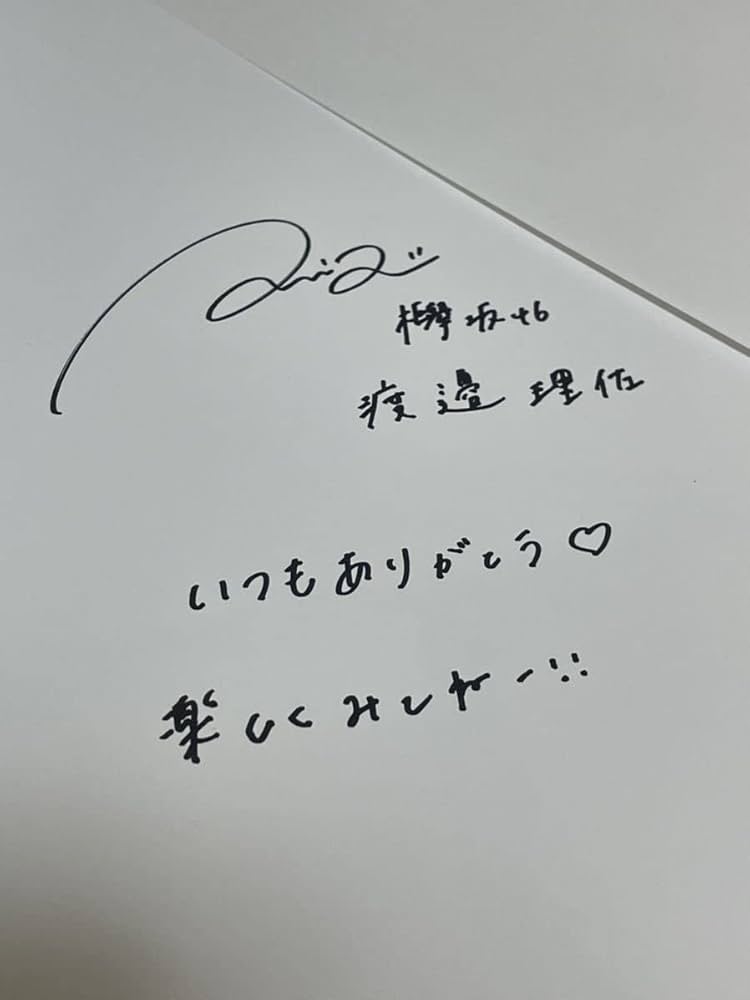 欅坂46
渡邉理佐
いつもありがとう♡
楽しくみてねー!!